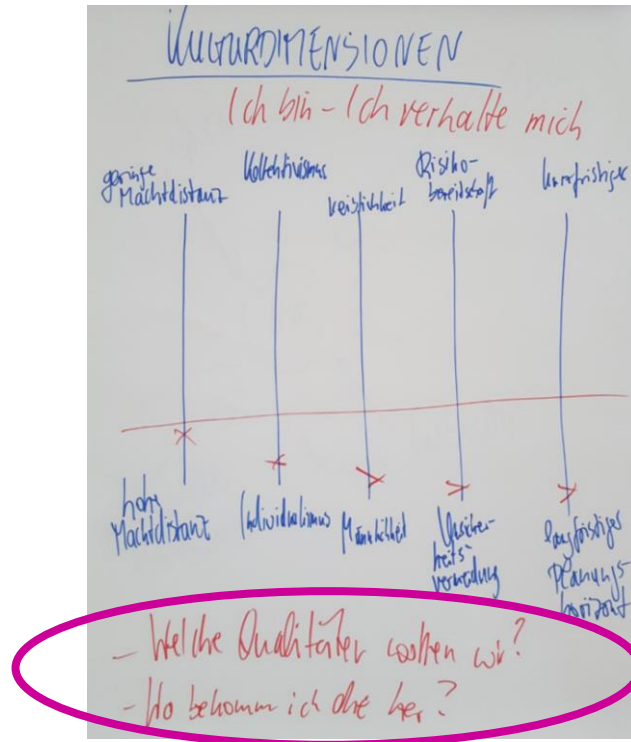 KULTURDIMENSIONEN
Ich bin - Ich verhalte mich
geringe Machtdistanz
Kollektivismus
Weiblichkeit
Risiko-
bereitschaft
kurzfristiger
hohe
Machtdistanz
Individualismus
Männlichkeit
Unsicher-
heits-
vermeidung
langfristiges
Planungs-
horizont
- Welche Qualitäten wollen wir?
- Wo bekomm ich die her?